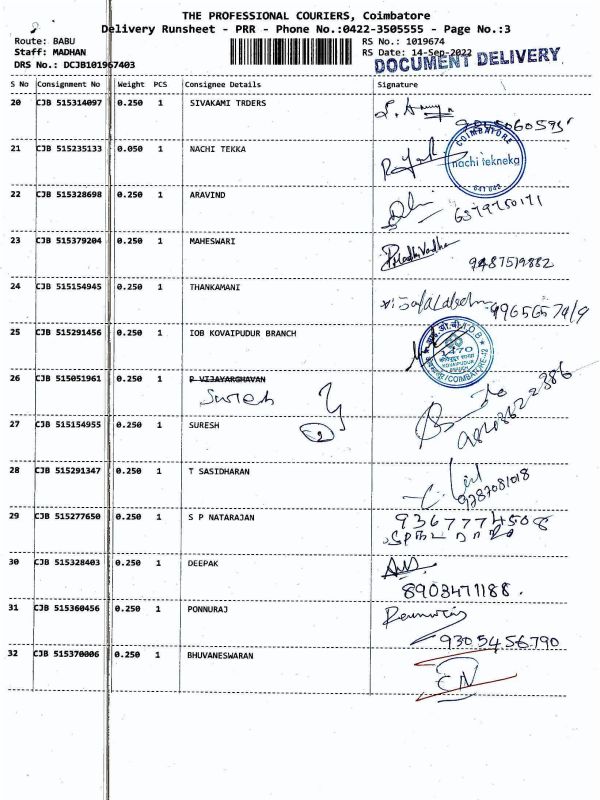 THE PROFESSIONAL COURIERS, Coimbatore
Delivery Runsheet - PRR - Phone No.:0422-3505555 - Page No.:3
Route: BABU
RS No.: 1019674
Staff: MADHAN
RS Date: 14-Sep-2022
DRS No.: DCJB101967403
DOCUMENT DELIVERY
S No Consignment No Weight PCS Consignee Details Signature
20 CJB 515314097 0.250 1 SIVAKAMI TRDERS
21 CJB 515235133 0.050 1 NACHI TEKKA
COIMBATORE
nachi tekneka
641 042
22 CJB 515328698 0.250 1 ARAVIND
6379750171
23 CJB 515379204 0.250 1 MAHESWARI
9487519882
24 CJB 515154945 0.250 1 THANKAMANI
25 CJB 515291456 0.250 1 IOB KOVAIPUDUR BRANCH
1470
26 CJB 515051961 0.250 1 P VIJAYARGHAVAN
Suresh
27 CJB 515154955 0.250 1 SURESH
2
28 CJB 515291347 0.250 1 T SASIDHARAN
9287081018
29 CJB 515277650 0.250 1 S P NATARAJAN
9367774508
30 CJB 515328403 0.250 1 DEEPAK
8903471188.
31 CJB 515360456 0.250 1 PONNURAJ
9305456790
32 CJB 515370006 0.250 1 BHUVANESWARAN